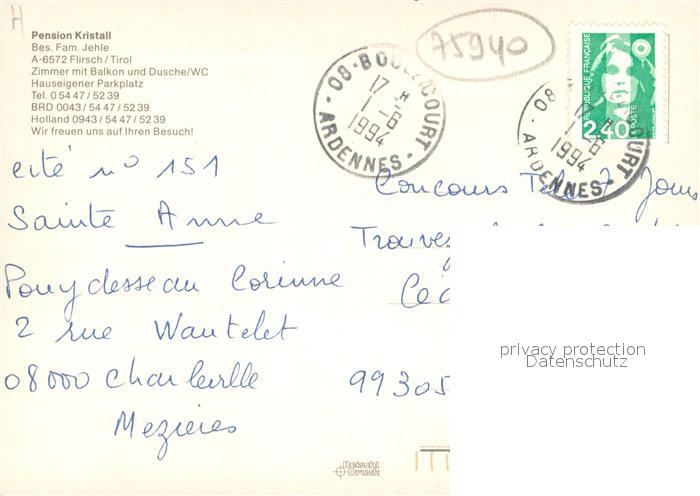 H
Pension Kristall
Bes. Fam. Jehle
A-6572 Flirsch / Tirol
Zimmer mit Balkon und Dusche/WC
Hauseigener Parkplatz
Tel. 0 54 47 / 52 39
BRD 0043 / 54 47 / 52 39
Holland 0943 / 54 47 / 52 39
Wir freuen uns auf Ihren Besuch!
75940
08-BOULZICOURT
17 H
1 -6
1994
ARDENNES
REPUBLIQUE FRANÇAISE
2,40
POSTE
08
COURT
17 H
1 -6
1994
ARDENNES
cité n° 151
Sainte Anne
Pouydesseau Corinne
2 rue Wautelet
08000 Charleville
Mezieres
Concours Télé 7 Jours
Trouvez
99305
privacy protection
Datenschutz
Reischl
Druck